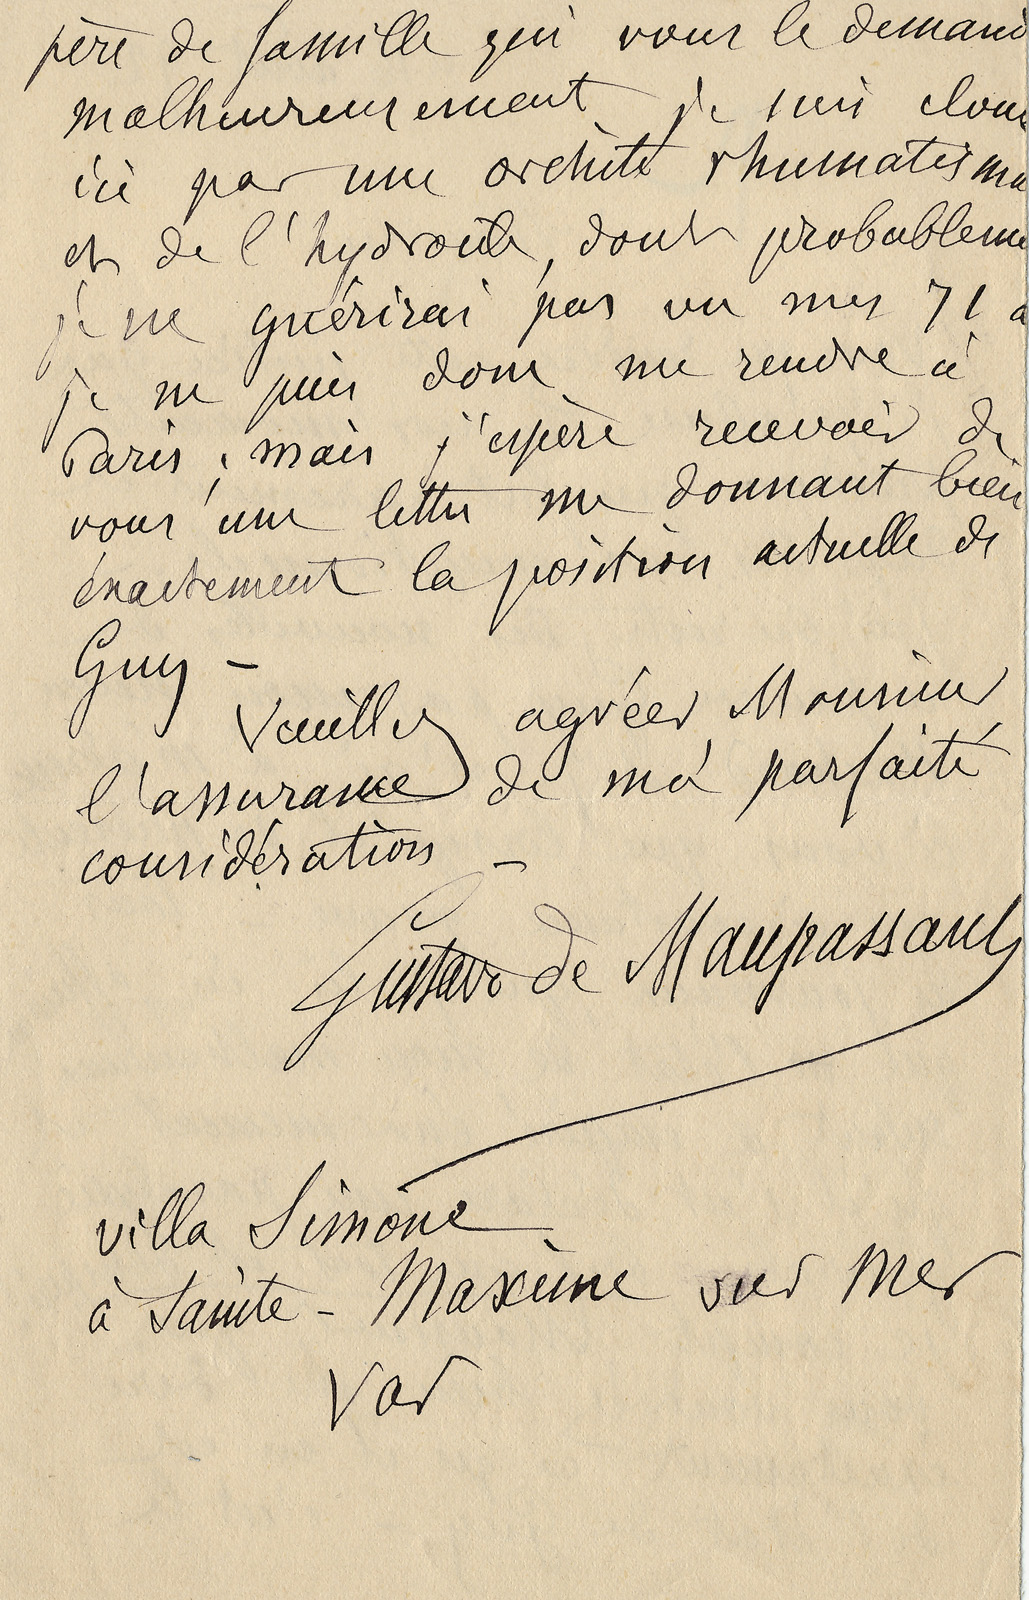 père de famille qui vous le demand
malheureusement je suis clou
ici par une orchite rhumatisma
et de l'hydrocèle, dont probableme
je ne guérirai pas vu mes 71 a
je ne puis donc me rendre à
Paris, mais j'espère recevoir de
vous une lettre me donnant bien
exactement la position actuelle de
Guy -
Veuillez agréer Monsieur
l'assurance de ma parfaite
considération -
Gustave de Maupassant
villa Simone
à Sainte-Maxime sur Mer
Var